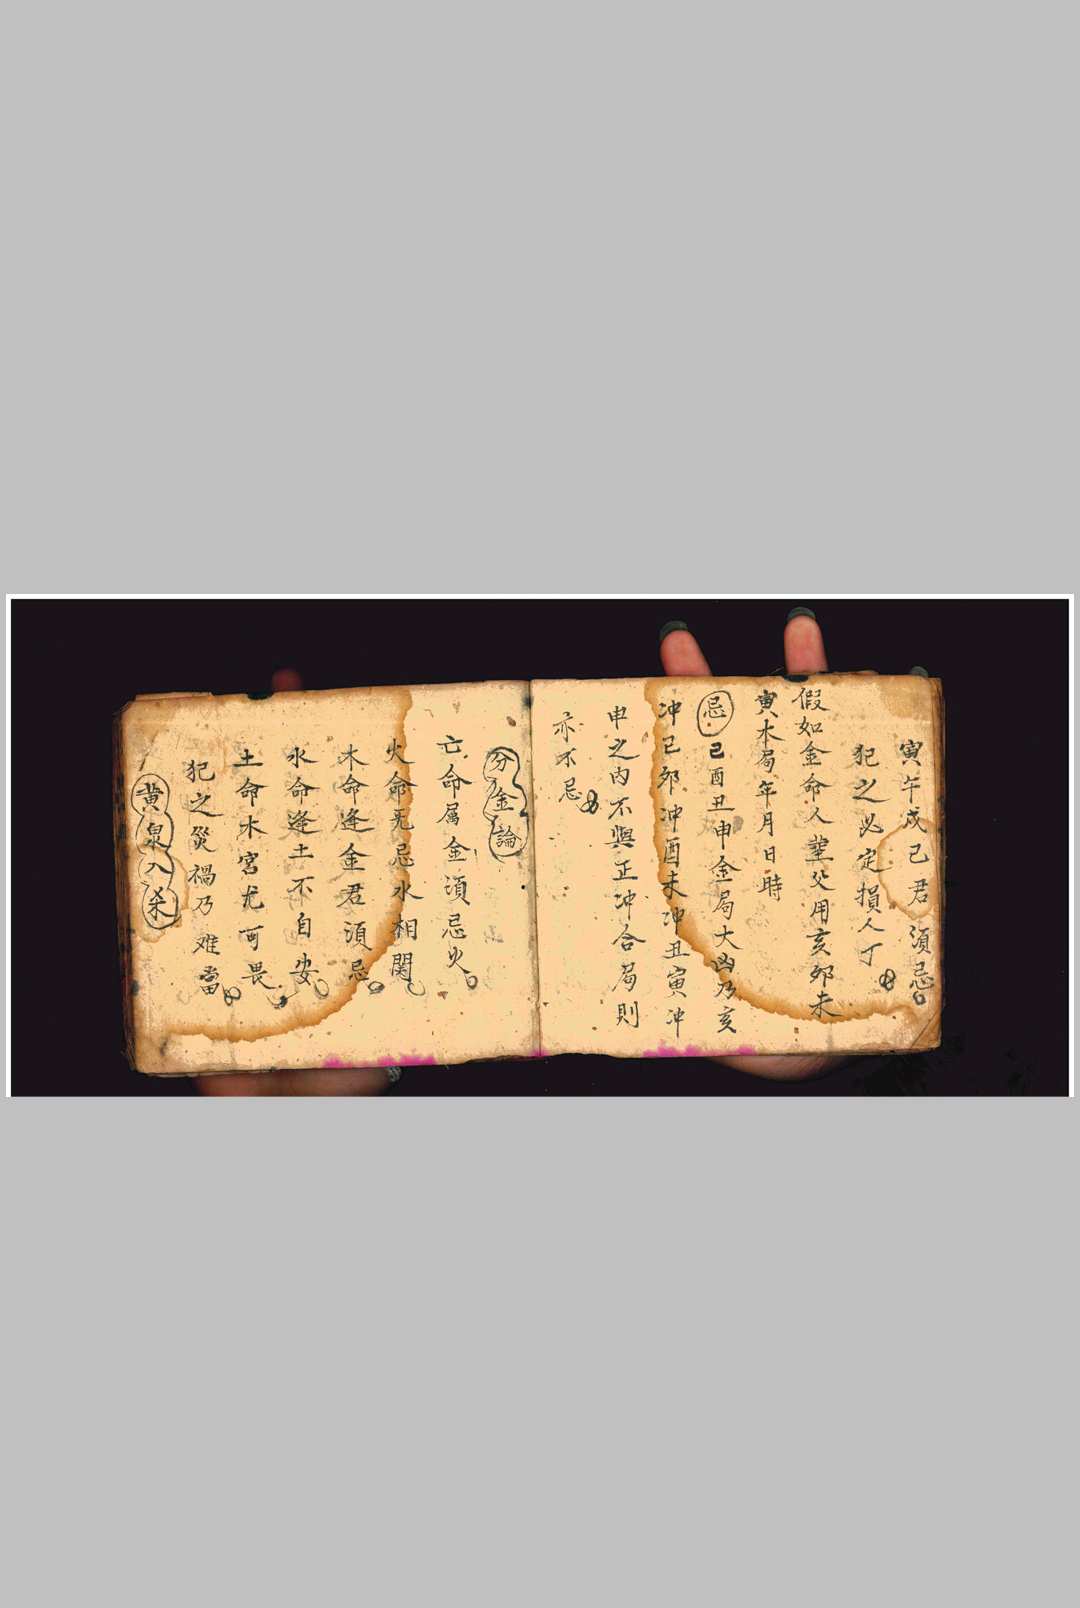 寅午戌己君須忌
犯之必定損人丁
假如金命人塟父用亥卯未
寅木局年月日時
忌己酉丑申金局大凶乃亥
冲己卯冲酉未冲丑寅冲
申之内不與正冲合局則
亦不忌
分金論
亡命属金須忌火
火命无忌水相関
木命逢金君須忌
水命逢土不自安
土命木宮尤可畏
犯之災禍乃难當
黄泉八杀